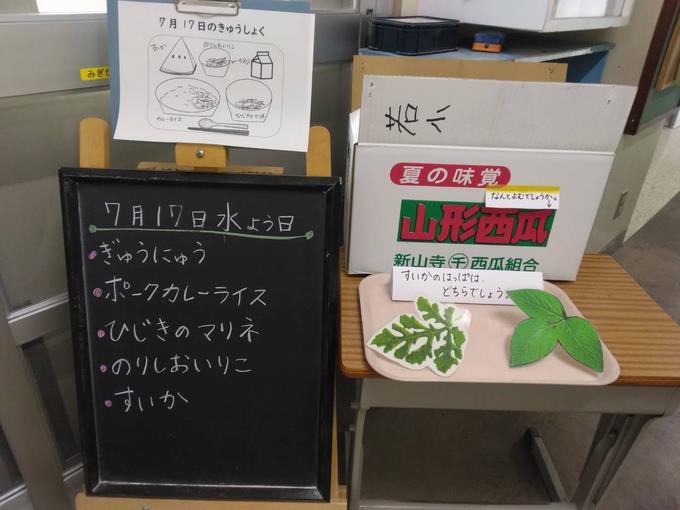 7月17日のきゅうしょく
すいか
のりしおいりこ
カレーライス
ひじきのマリネ
みぎ
7月17日水よう日
ぎゅうにゅう
ポークカレーライス
ひじきのマリネ
のりしおいりこ
すいか
若小
夏の味覚
なんとよむでしょうか。
山形西瓜
新山寺 千 西瓜組合
すいかのはっぱは、
どちらでしょう。